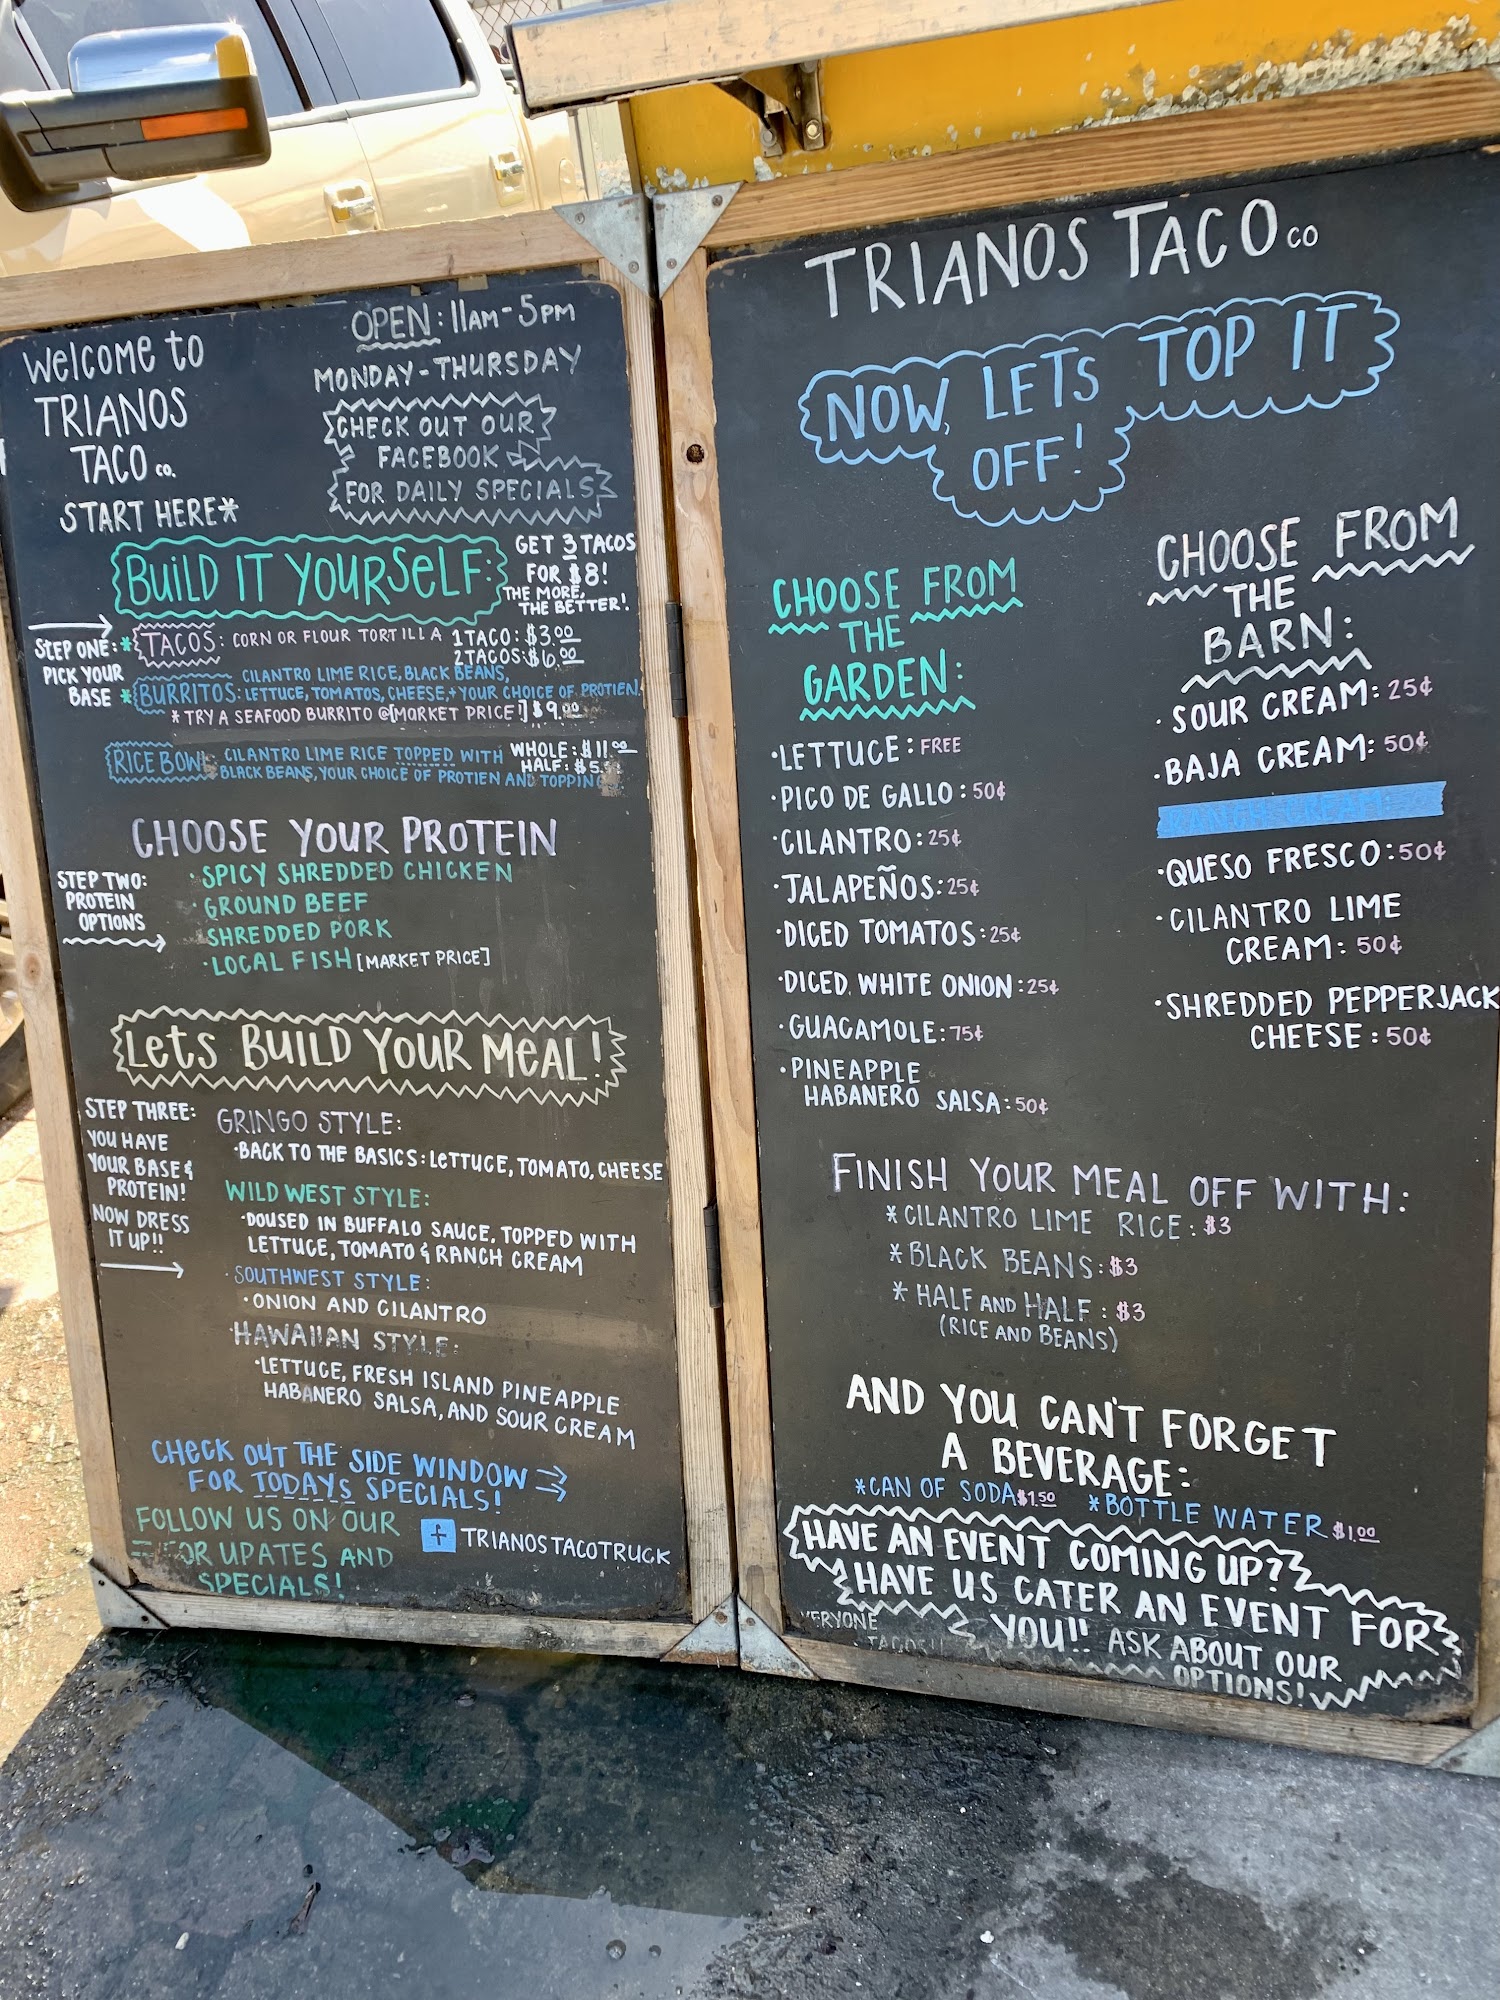 Welcome to
TRIANOS
TACO co.
START HERE*
OPEN: 11AM-5PM
MONDAY-THURSDAY
CHECK OUT OUR
FACEBOOK
FOR DAILY SPECIALS
BUILD IT YOURSELF:
GET 3 TACOS
FOR $8!
THE MORE,
THE BETTER!
STEP ONE:
PICK YOUR
BASE
*TACOS: CORN OR FLOUR TORTILLA
1 TACO: $3.00
2 TACOS: $6.00
CILANTRO LIME RICE, BLACK BEANS,
*BURRITOS: LETTUCE, TOMATOS, CHEESE, + YOUR CHOICE OF PROTIEN.
*TRY A SEAFOOD BURRITO @[MARKET PRICE!] $9.00
RICE BOWL CILANTRO LIME RICE TOPPED WITH
BLACK BEANS, YOUR CHOICE OF PROTIEN AND TOPPING
WHOLE: $11.00
HALF:
CHOOSE YOUR PROTEIN
STEP TWO:
PROTEIN
OPTIONS
·SPICY SHREDDED CHICKEN
·GROUND BEEF
SHREDDED PORK
·LOCAL FISH [MARKET PRICE]
Lets BUILD YOUR MEAL!
STEP THREE:
YOU HAVE
YOUR BASE &
PROTEIN!
NOW DRESS
IT UP!!
GRINGO STYLE:
·BACK TO THE BASICS: LETTUCE, TOMATO, CHEESE
WILD WEST STYLE:
·DOUSED IN BUFFALO SAUCE, TOPPED WITH
LETTUCE, TOMATO & RANCH CREAM
SOUTHWEST STYLE:
·ONION AND CILANTRO
HAWAIIAN STYLE:
·LETTUCE, FRESH ISLAND PINEAPPLE
HABANERO SALSA, AND SOUR CREAM
CHECK OUT THE SIDE WINDOW
FOR TODAYS SPECIALS!
FOLLOW US ON OUR
FOR UPATES AND
SPECIALS!
f TRIANOSTACOTRUCK
TRIANOS TACO CO
NOW, LETS TOP IT
OFF!
CHOOSE FROM
THE
GARDEN:
·LETTUCE: FREE
·PICO DE GALLO: 50¢
·CILANTRO: 25¢
·JALAPEÑOS: 25¢
·DICED TOMATOS: 25¢
·DICED WHITE ONION: 25¢
·GUACAMOLE: 75¢
·PINEAPPLE
HABANERO SALSA: 50¢
CHOOSE FROM
THE
BARN:
·SOUR CREAM: 25¢
·BAJA CREAM: 50¢
·QUESO FRESCO: 50¢
·CILANTRO LIME
CREAM: 50¢
·SHREDDED PEPPERJACK
CHEESE: 50¢
FINISH YOUR MEAL OFF WITH:
*CILANTRO LIME RICE: $3
*BLACK BEANS: $3
*HALF AND HALF: $3
(RICE AND BEANS)
AND YOU CAN'T FORGET
A BEVERAGE:
*CAN OF SODA $1.50 *BOTTLE WATER $1.00
HAVE AN EVENT COMING UP?
HAVE US CATER AN EVENT FOR
YOU!! ASK ABOUT OUR
OPTIONS!
TACOS!!